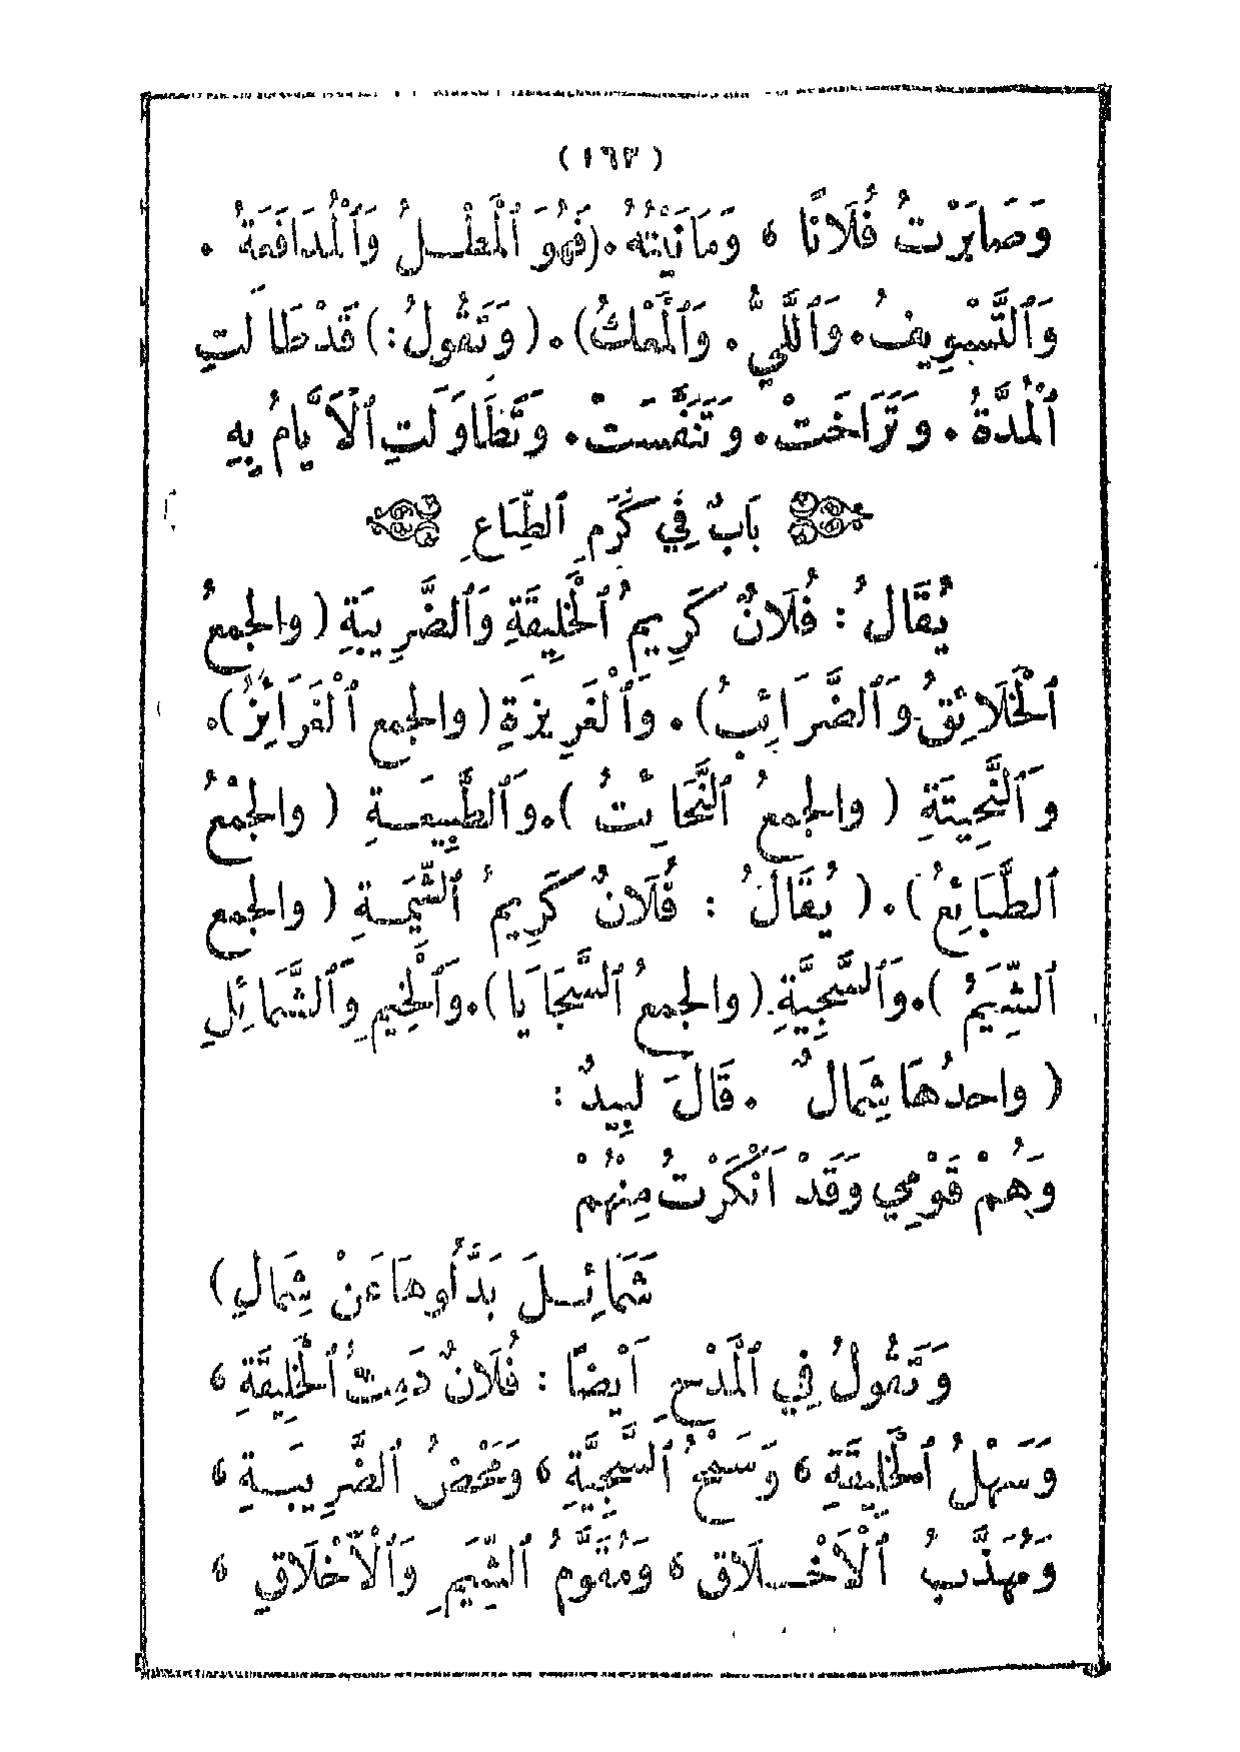 (١٦٣)
وَصَابَرْتُ فُلَانًا ، وَمَانَيْتُهُ .(فَهُوَ ٱلْمَطْلُ وَٱلْمُدَافَعَةُ .
وَٱلتَّسْوِيفُ. وَٱللَّيُّ . وَٱلْمَعْكُ) . ( وَتَقُولُ : ) قَدْ طَالَتِ
ٱلْمُدَّةُ . وَتَرَاخَتْ . وَتَنَفَّسَتْ . وَتَطَاوَلَتِ ٱلْأَيَّامُ بِهِ
بَابٌ فِي كَرَمِ ٱلطِّبَاعِ
يُقَالُ : فُلَانٌ كَرِيمُ ٱلْخَلِيقَةِ وَٱلضَّرِيبَةِ ( والجمعُ
ٱلْخَلَائِقُ وَٱلضَّرَائِبُ) . وَٱلْغَرِيزَةِ ( والجمع ٱلْغَرَائِزُ) .
وَٱلنَّحِيتَةِ ( والجمعُ ٱلنَّحَائِتُ ) . وَٱلطَّبِيعَةِ ( والجمْعُ
ٱلطَّبَائِعُ ) . ( يُقَالُ : فُلَانٌ كَرِيمُ ٱلشِّيمَةِ ( والجمع
ٱلشِّيَمُ ) . وَٱلسَّجِيَّةِ ( والجمعُ ٱلسَّجَايَا ) . وَٱلْخِيمِ وَٱلشَّمَائِلِ
( واحدُهَا شِمَالٌ . قَالَ لَبِيدٌ :
وَهُمْ قَوْمِي وَقَدْ أَنْكَرْتُ مِنْهُمْ
شَمَائِلَ بَدَّأُوهَا عَنْ شِمَالِ )
وَتَقُولُ فِي ٱلْمَدْحِ أَيْضًا : فُلَانٌ دَمِثُ ٱلْخَلِيقَةِ ،
وَسَهْلُ ٱلْخَلِيقَةِ ، وَسَمْحُ ٱلسَّجِيَّةِ ، وَمَحْضُ ٱلضَّرِيبَةِ ،
وَمُهَذَّبُ ٱلْأَخْلَاقِ ، وَمُقَوَّمُ ٱلشِّيَمِ وَٱلْأَخْلَاقِ ،